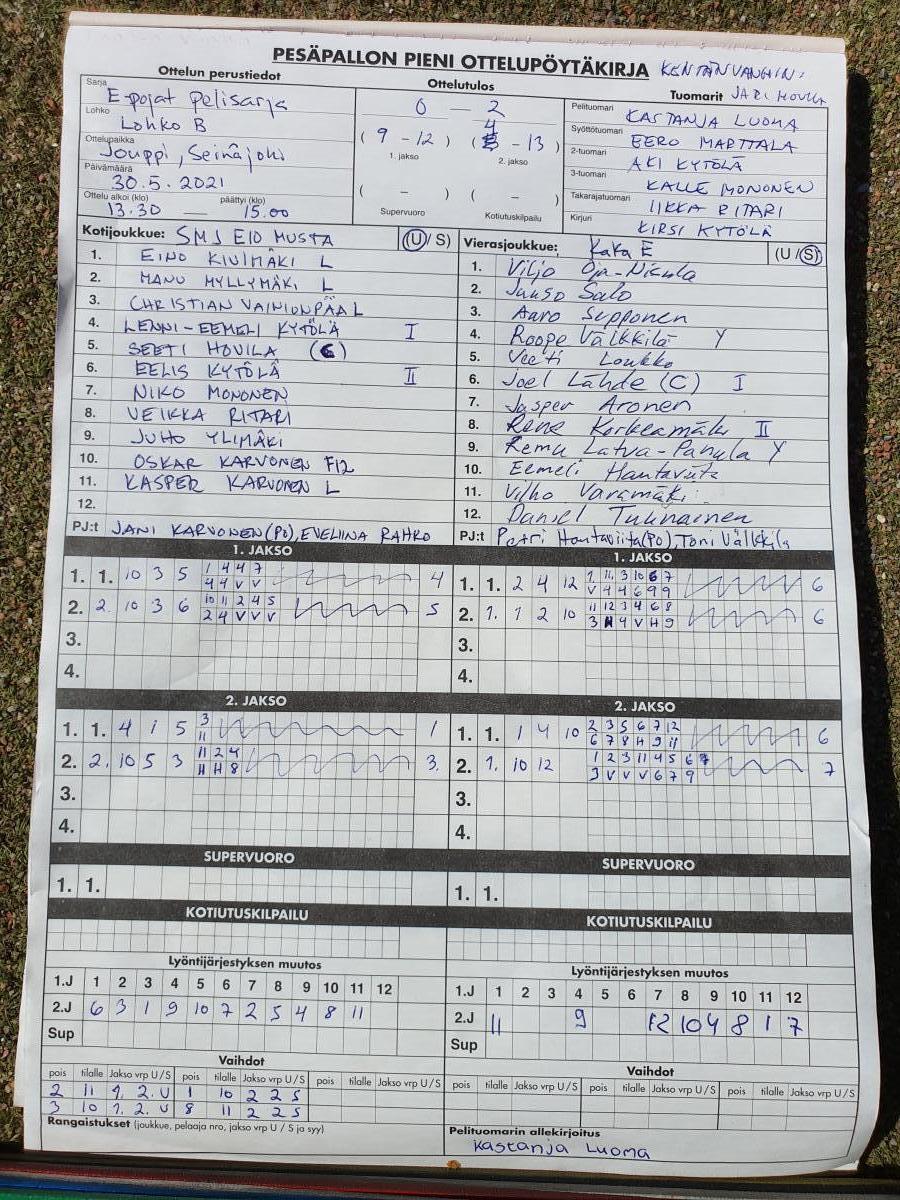 PESÄPALLON PIENI OTTELUPÖYTÄKIRJA KENTÄNVANHIN:
JARI HOVILA
Ottelun perustiedot
Sarja E-pojat pelisarja
Lohko Lohko B
Ottelupaikka Jouppi, Seinäjoki
Päivämäärä 30.5.2021
Ottelu alkoi (klo) päättyi (klo)
13.30 — 15.00
Ottelutulos
0 — 2
(9 - 12) (4 - 13)
1. jakso 2. jakso
( - ) ( - )
Supervuoro Kotiutuskilpailu
Tuomarit
Pelituomari KASTANJA LUOMA
Syöttötuomari EERO MARTTALA
2-tuomari AKI KYTÖLÄ
3-tuomari KALLE MONONEN
Takarajatuomari IIKKA RITARI
Kirjuri KIRSI KYTÖLÄ
Kotijoukkue: SMJ E10 MUSTA (U/ S)
1. EINO KIVIMÄKI L
2. MANU MYLLYMÄKI L
3. CHRISTIAN VAINIONPÄÄ L
4. LENNI-EEMELI KYTÖLÄ I
5. SEETI HOVILA (C)
6. EELIS KYTÖLÄ II
7. NIKO MONONEN
8. VEIKKA RITARI
9. JUHO YLIMÄKI
10. OSKAR KARVONEN F12
11. KASPER KARVONEN L
12.
PJ:t JANI KARVONEN (PO), EVELIINA RAHKO
Vierasjoukkue: KaKa E (U /S)
1. Viljo Oja-Nikula
2. Juuso Salo
3. Aaro Sipponen
4. Roope Välkkilä Y
5. Veeti Loukko
6. Joel Lähde (C) I
7. Jasper Aronen
8. Rene Korkeamäki II
9. Remu Latva-Panula Y
10. Eemeli Hautaviita
11. Vilho Varamäki
12. Daniel Tuunainen
PJ:t Petri Hautaviita (PO), Toni Välkkilä
1. JAKSO
1. 1. 10 3 5 1 4 4 7 4
4 4 V V
2. 2. 10 3 6 10 11 2 4 5 5
2 4 V V V
3.
4.
1. JAKSO
1. 1. 2 4 12 1 11 3 10 6 7 6
V 4 4 6 9 9
2. 1. 1 2 10 11 12 3 4 6 8 6
3 H 4 V H 9
3.
4.
2. JAKSO
1. 1. 4 1 5 3 1
11
2. 2. 10 5 3 11 2 4 3.
H H 8
3.
4.
2. JAKSO
1. 1. 1 4 10 2 3 5 6 7 12 6
6 7 8 H 9 11
2. 1. 10 12 1 2 3 11 4 5 6 7 7
3 V V V 6 7 9
3.
4.
SUPERVUORO
1. 1.
SUPERVUORO
1. 1.
KOTIUTUSKILPAILU
KOTIUTUSKILPAILU
Lyöntijärjestyksen muutos
1.J 1 2 3 4 5 6 7 8 9 10 11 12
2.J 6 3 1 9 10 7 2 5 4 8 11
Sup
Lyöntijärjestyksen muutos
1.J 1 2 3 4 5 6 7 8 9 10 11 12
2.J 11 9 12 10 4 8 1 7
Sup
Vaihdot
pois tilalle Jakso vrp U / S pois tilalle Jakso vrp U / S pois tilalle Jakso vrp U / S
2 11 1. 2. U 1 10 2 2 S
3 10 1. 2. U 8 11 2 2 S
Vaihdot
pois tilalle Jakso vrp U / S pois tilalle Jakso vrp U / S pois tilalle Jakso vrp U / S
Rangaistukset (joukkue, pelaaja nro, jakso vrp U / S ja syy)
Pelituomarin allekirjoitus
Kastanja Luoma